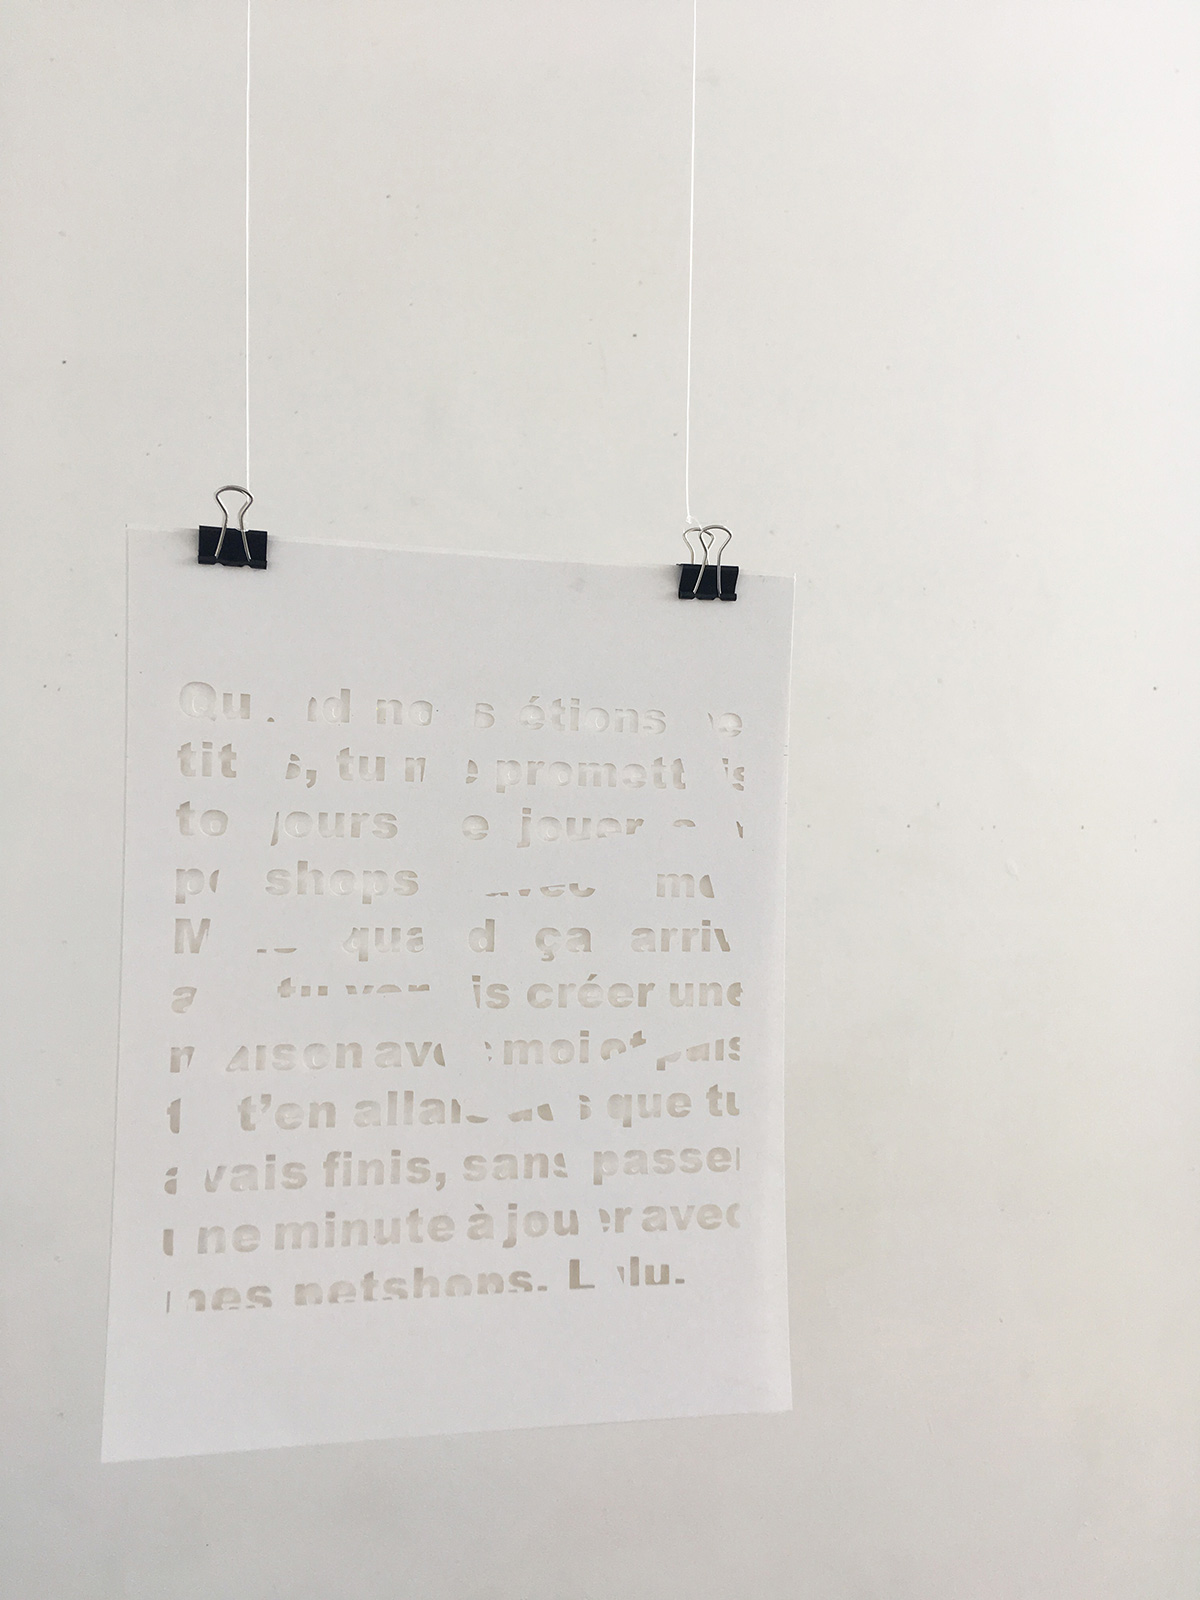 Quand nous étions pe
tites, tu me promettais
toujours de jouer aux
petshops avec moi
Mais quand ça arriv
a tu venais créer une
maison avec moi et puis
t t'en allais dès que tu
avais finis, sans passer
une minute à jouer avec
mes petshops. Lulu.